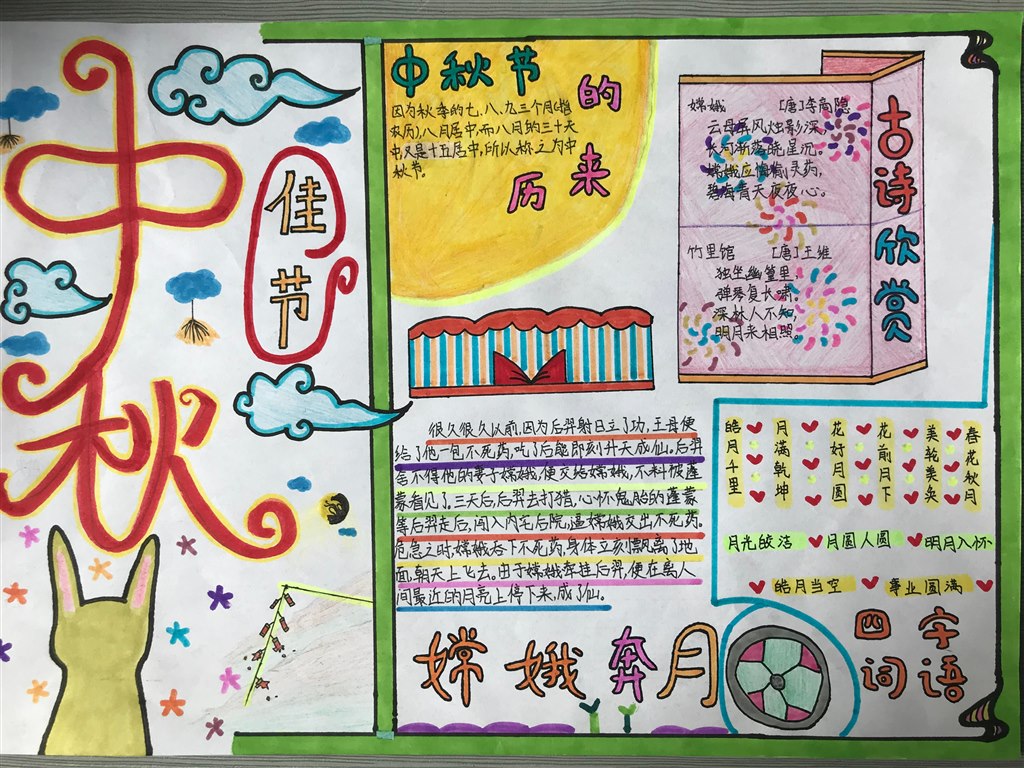 中秋
佳节
中秋节的历来
因为秋季的七、八、九三个月(指
农历),八月居中,而八月的三十天
中,又是十五居中,所以称之为中
秋节。
古诗欣赏
嫦娥 [唐]李商隐
云母屏风烛影深,
长河渐落晓星沉。
嫦娥应悔偷灵药,
碧海青天夜夜心。
竹里馆 [唐]王维
独坐幽篁里,
弹琴复长啸。
深林人不知,
明月来相照。
很久很久以前,因为后羿射日立了功,王母便
给了他一包不死药,吃了后能即刻升天成仙。后羿
舍不得他的妻子嫦娥,便交给嫦娥,不料被蓬
蒙看见了,三天后,后羿去打猎,心怀鬼胎的蓬蒙
等后羿走后,闯入内宅后院,逼嫦娥交出不死药。
危急之时,嫦娥吞下不死药,身体立刻飘离了地
面,朝天上飞去。由于嫦娥牵挂后羿,便在离人
间最近的月亮上停下来,成了仙。
嫦娥奔月
皓月千里
月满乾坤
花好月圆
花前月下
美轮美奂
春花秋月
月光皎洁
月圆人圆
明月入怀
皓月当空
事业圆满
四字
词语